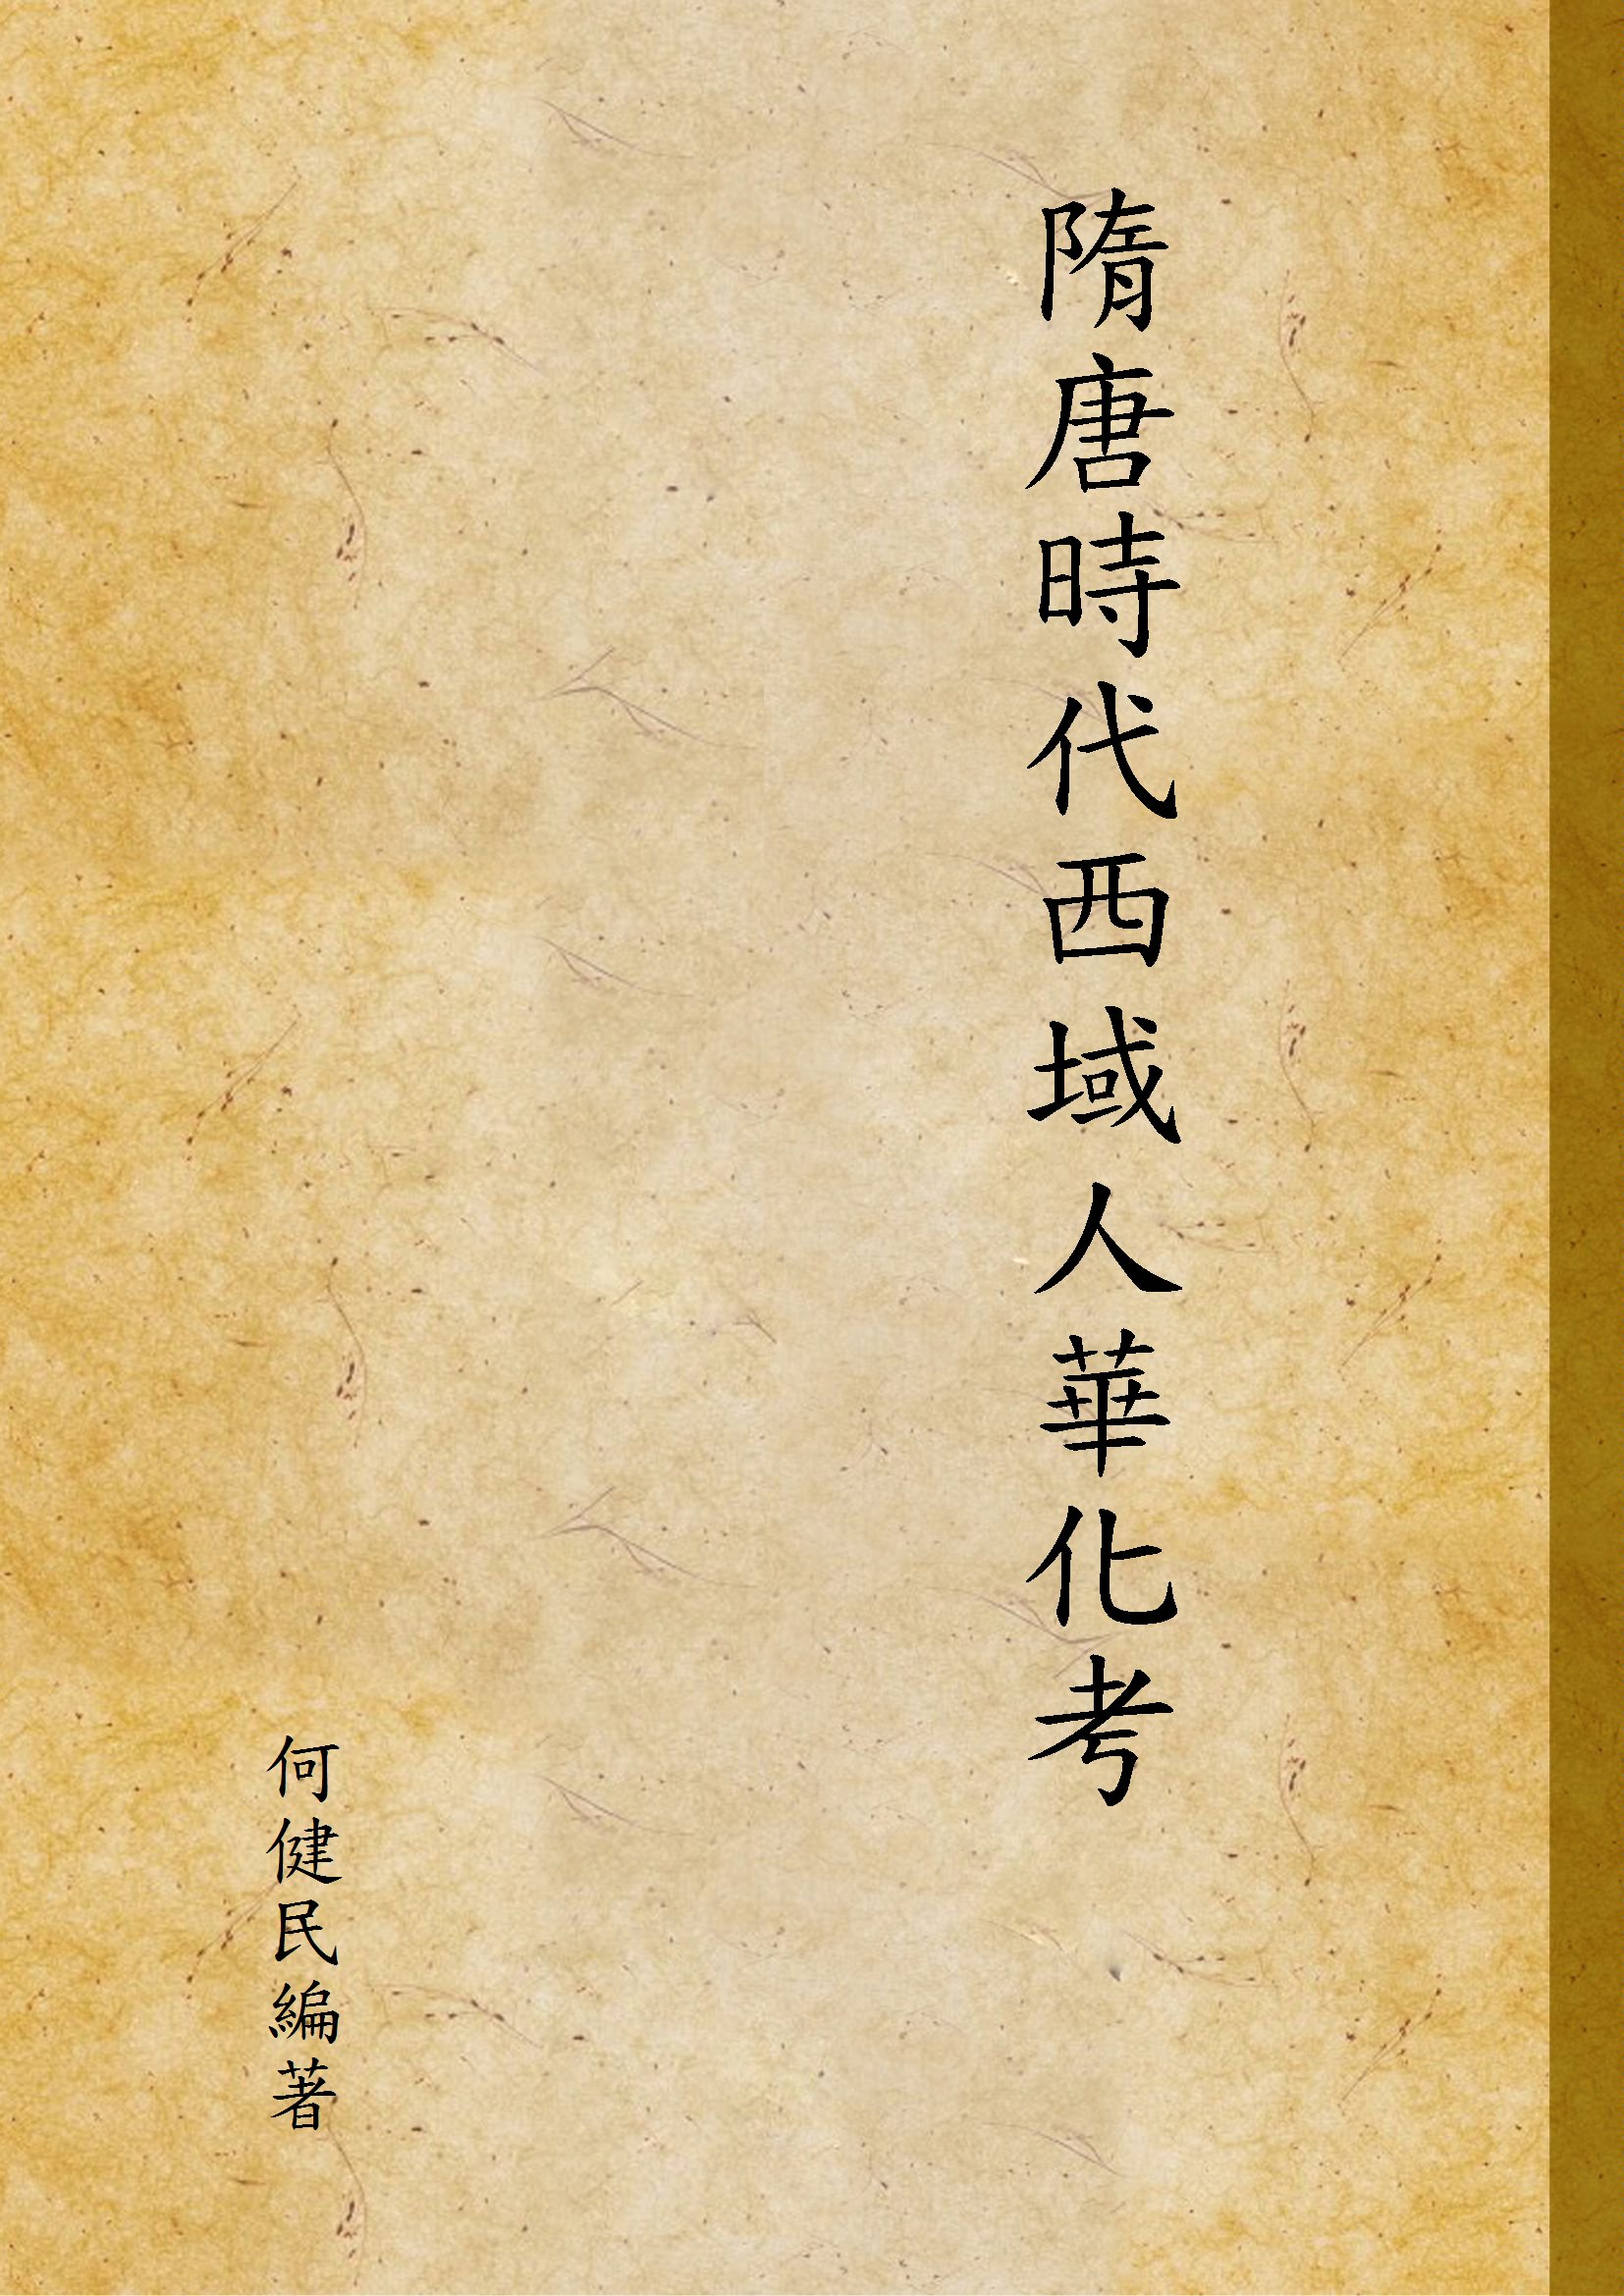 隋唐時代西域人華化考
何健民編著